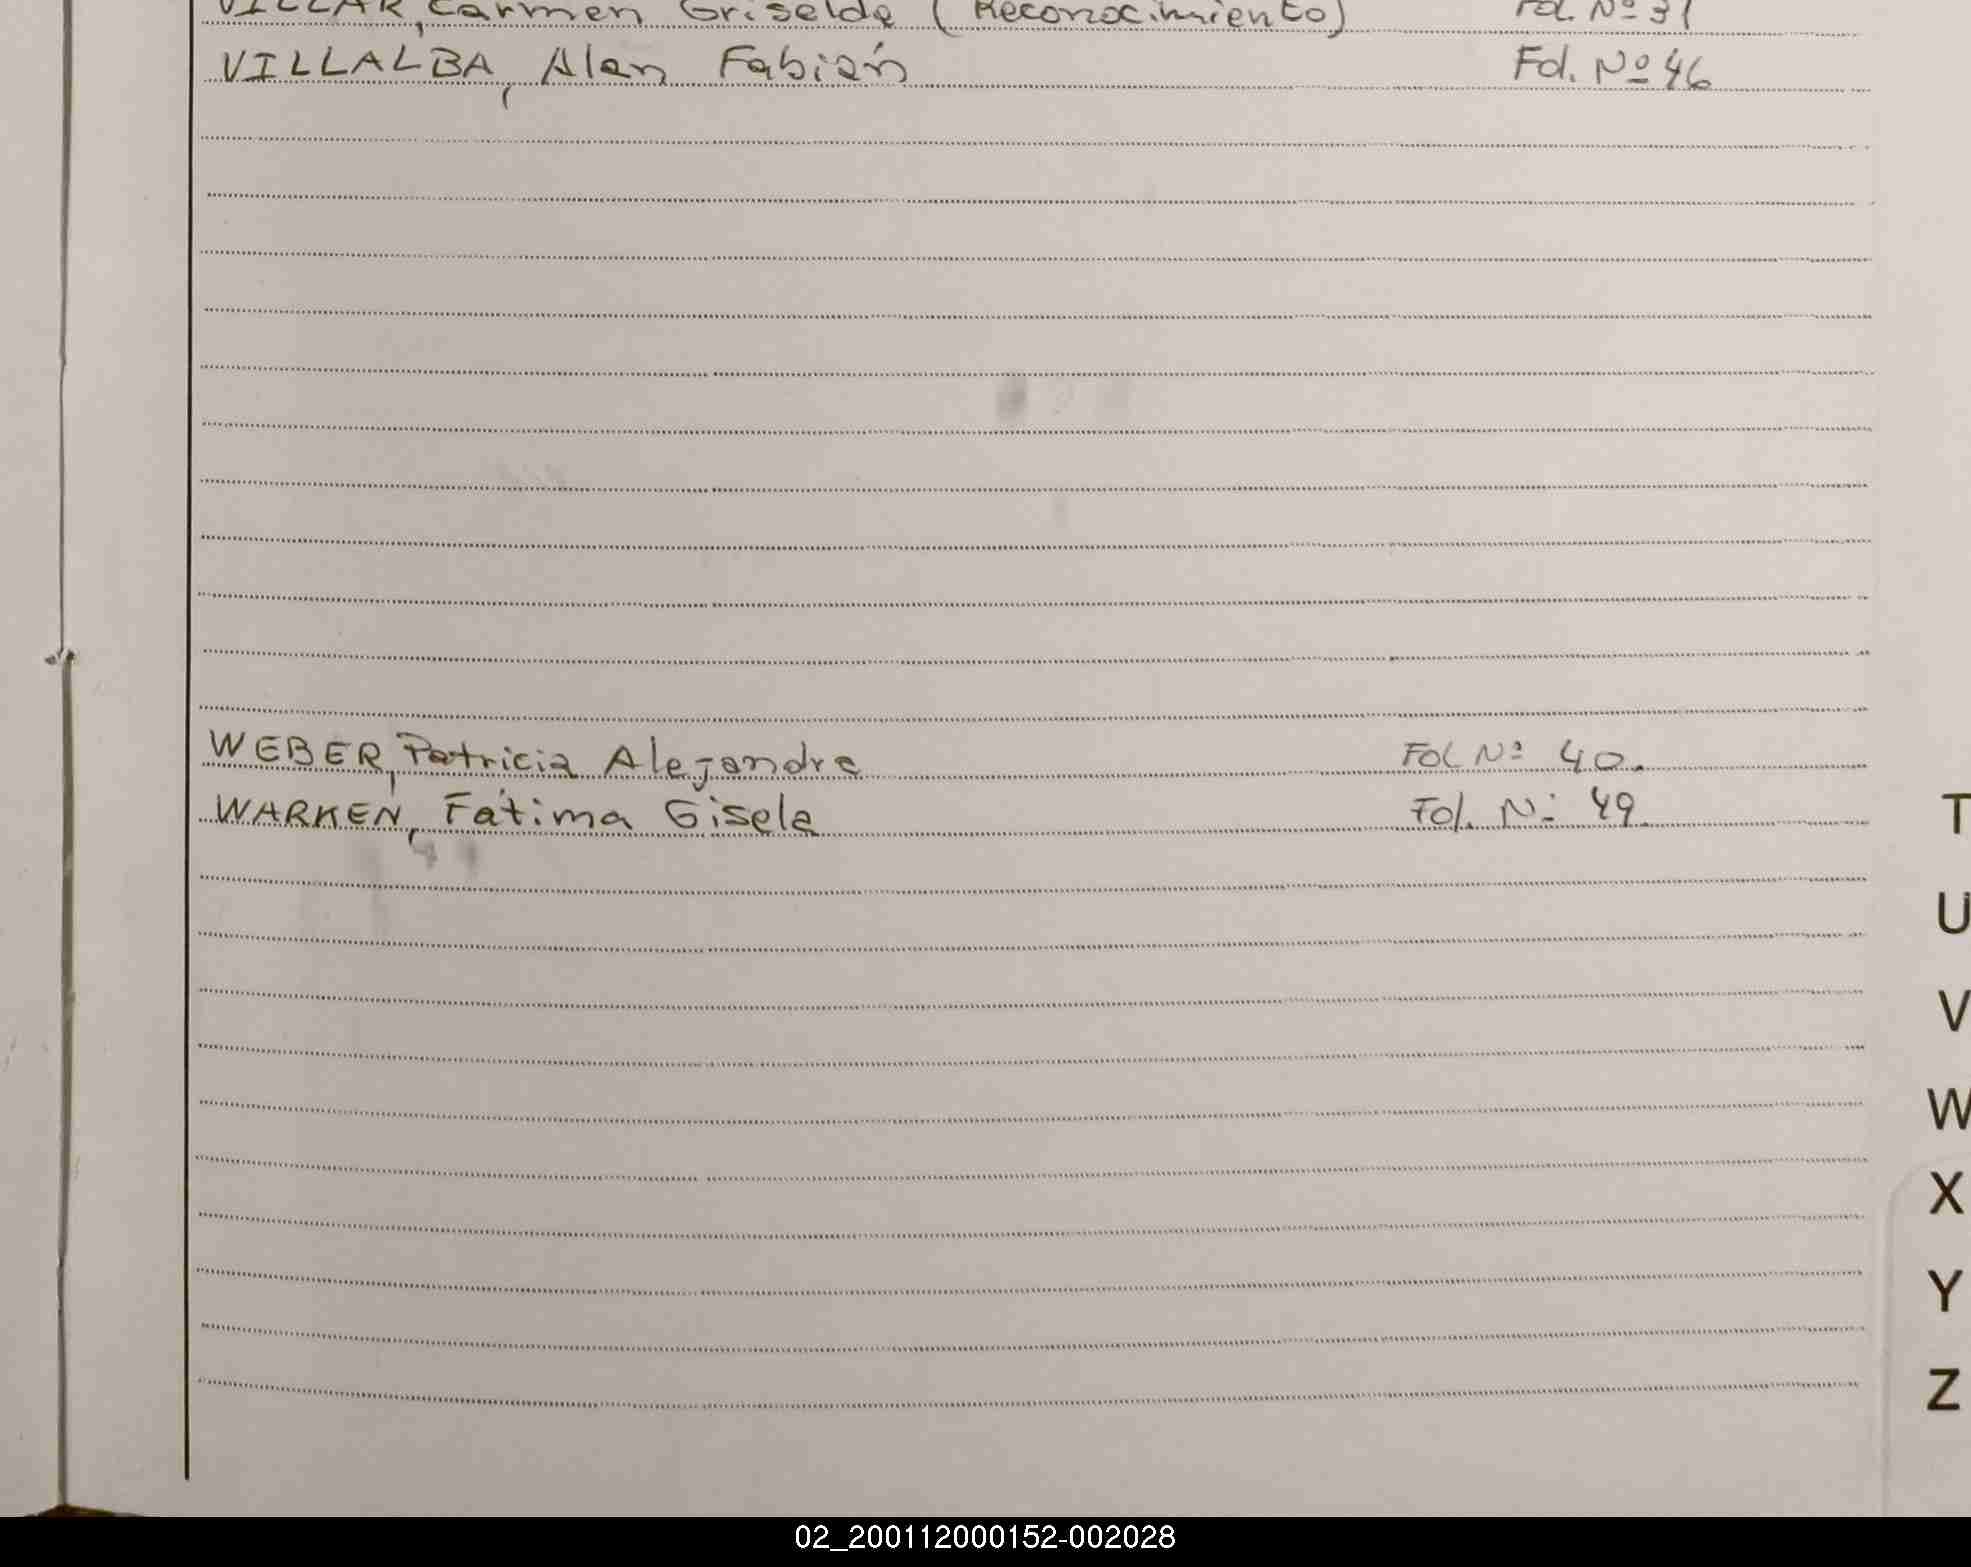 VILLAR, Carmen Griselda (Reconocimiento) Fol. Nº 31
VILLALBA, Alan Fabián Fol. Nº 46
WEBER, Patricia Alejandra Fol Nº 40.
WARKEN, Fátima Gisela Fol. Nº 49.
T
U
V
W
X
Y
Z
02_200112000152-002028